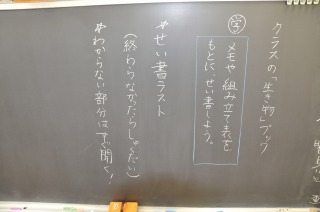 クラスの「生き物」ブック
学
メモや組み立て表を
もとに、せい書しよう。
*せい書ラスト
(終わらなかったらしゅくだい)
*わからない部分はすぐ聞く!